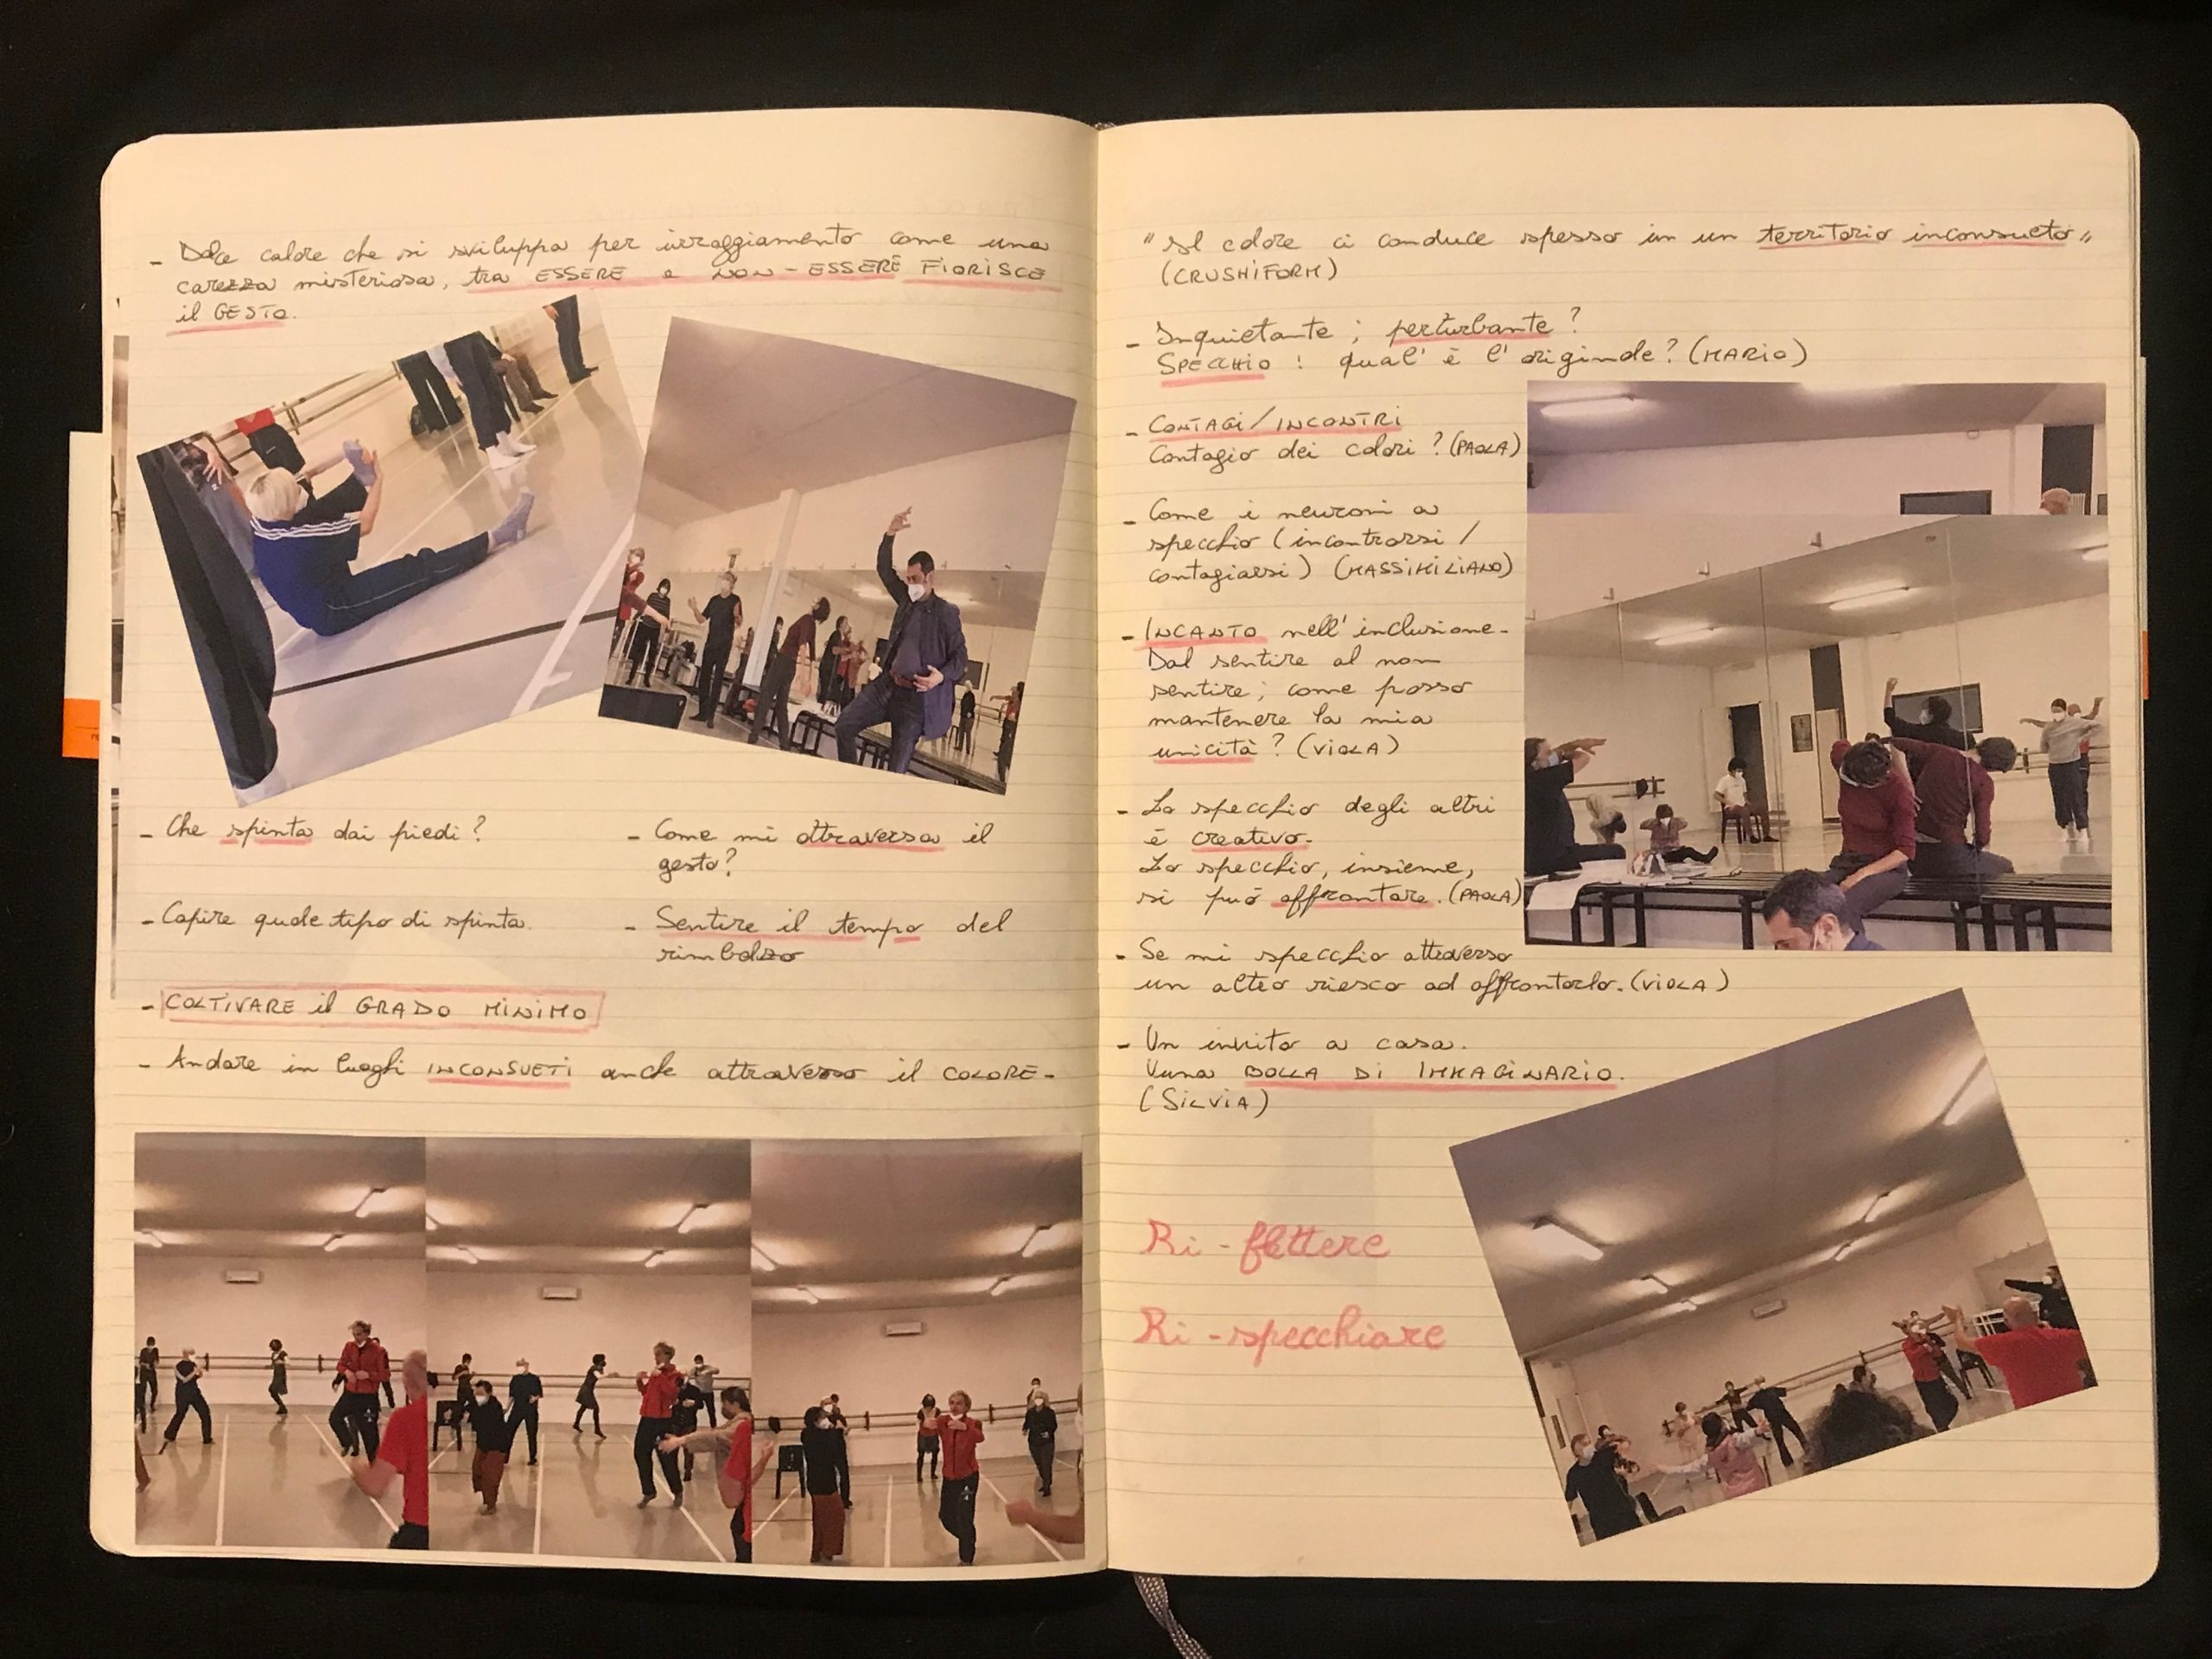 - Dolce calore che si sviluppa per irraggiamento come una
carezza misteriosa, tra ESSERE e NON-ESSERE FIORISCE
il GESTO.
- Che spinta dai piedi?
- Capire quale tipo di spinta.
- Come mi attraversa il
gesto?
- Sentire il tempo del
rimbalzo
- COLTIVARE il GRADO MINIMO
- Andare in luoghi INCONSUETI anche attraverso il COLORE-
"Il colore ci conduce spesso in un territorio inconsueto"
(CRUSHIFORM)
- Inquietante; perturbante?
SPECCHIO: qual'è l'originale? (MARIO)
- CONTAGI/INCONTRI
Contagio dei colori? (PAOLA)
- Come i neuroni a
specchio (incontrarsi /
contagiarsi) (MASSIMILIANO)
- INCANTO nell'inclusione-
Dal sentire al non
sentire; come posso
mantenere la mia
unicità? (VIOLA)
- Lo specchio degli altri
è creativo.
Lo specchio, insieme,
si può affrontare. (PAOLA)
- Se mi specchio attraverso
un altro riesco ad affrontarlo. (VIOLA)
- Un invito a casa.
Una BOLLA DI IMMAGINARIO.
(SILVIA)
Ri-flettere
Ri-specchiare